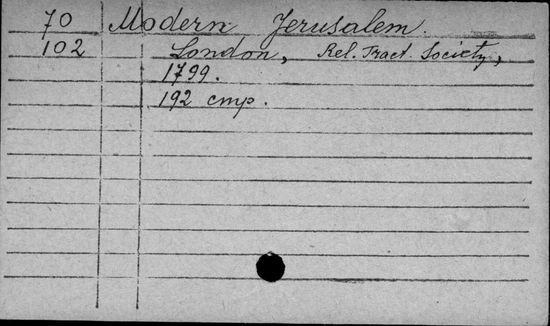 70 Modern Jerusalem.
102 London, Rel. Tract. Society,
1799.
192 cmp.